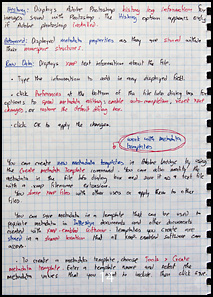 History: Displays Adobe Photoshop history log information for
images saved with Photoshop. The History option appears only
if Adobe Photoshop installed.
Advanced: Displayed metadata properties as they are stored within
their namespace structures.
Raw Data: Displays XMP text information about the file.
• Type the information to add in any displayed field.
• Click Preferences at the bottom of the File Info dialog box for
options to speed metadata editing: enable auto-completion, reset XMP
changes, or restore the default dialog box.
• Click OK to apply the changes.
work with metadata
templates
You can create new metadata templates in Adobe Bridge by using
the Create metadata Template command. You can also modify the
metadata in the File Info dialog box and save it as a text file
with a .xmp filename extension.
You share XMP files with other users or apply them to other
files.
You can save metadata in a template that can be used to
populate metadata in InDesign documents and other documents
created with XMP-enabled software. Templates you create are
stored in a shared location that all XMP-enabled software can
access.
• To create a metadata template, choose Tools > Create
metadata Template. Enter a template name and select the
metadata values that you want to include then click Save